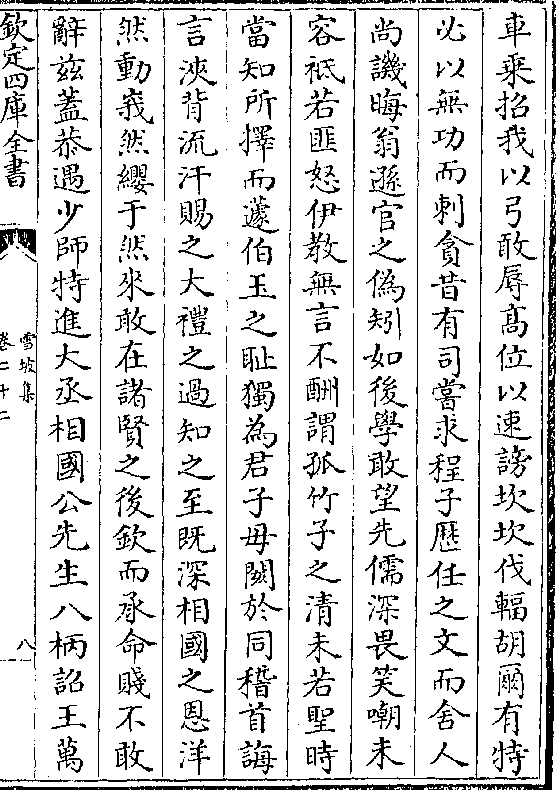 車乘招我以弓敢辱髙位以速謗坎坎伐輻胡爾有特
必以無功而刺貪昔有司嘗求程子歴任之文而舍人
尚譏晦翁遜官之偽矧如後學敢望先儒深畏笑嘲未
容祗若匪怒伊教無言不酬謂孤竹子之清未若聖時
當知所擇而蘧伯玉之恥獨為君子毋闗於同稽首誨
言浹背流汗賜之大禮之過知之至既深相國之恩洋
然動峩然纓于然來敢在諸賢之後欽而承命賤不敢
辭兹蓋恭遇少師特進大丞相國公先生八柄詔王萬
欽定四庫全書
雪坡集
卷二十二
八